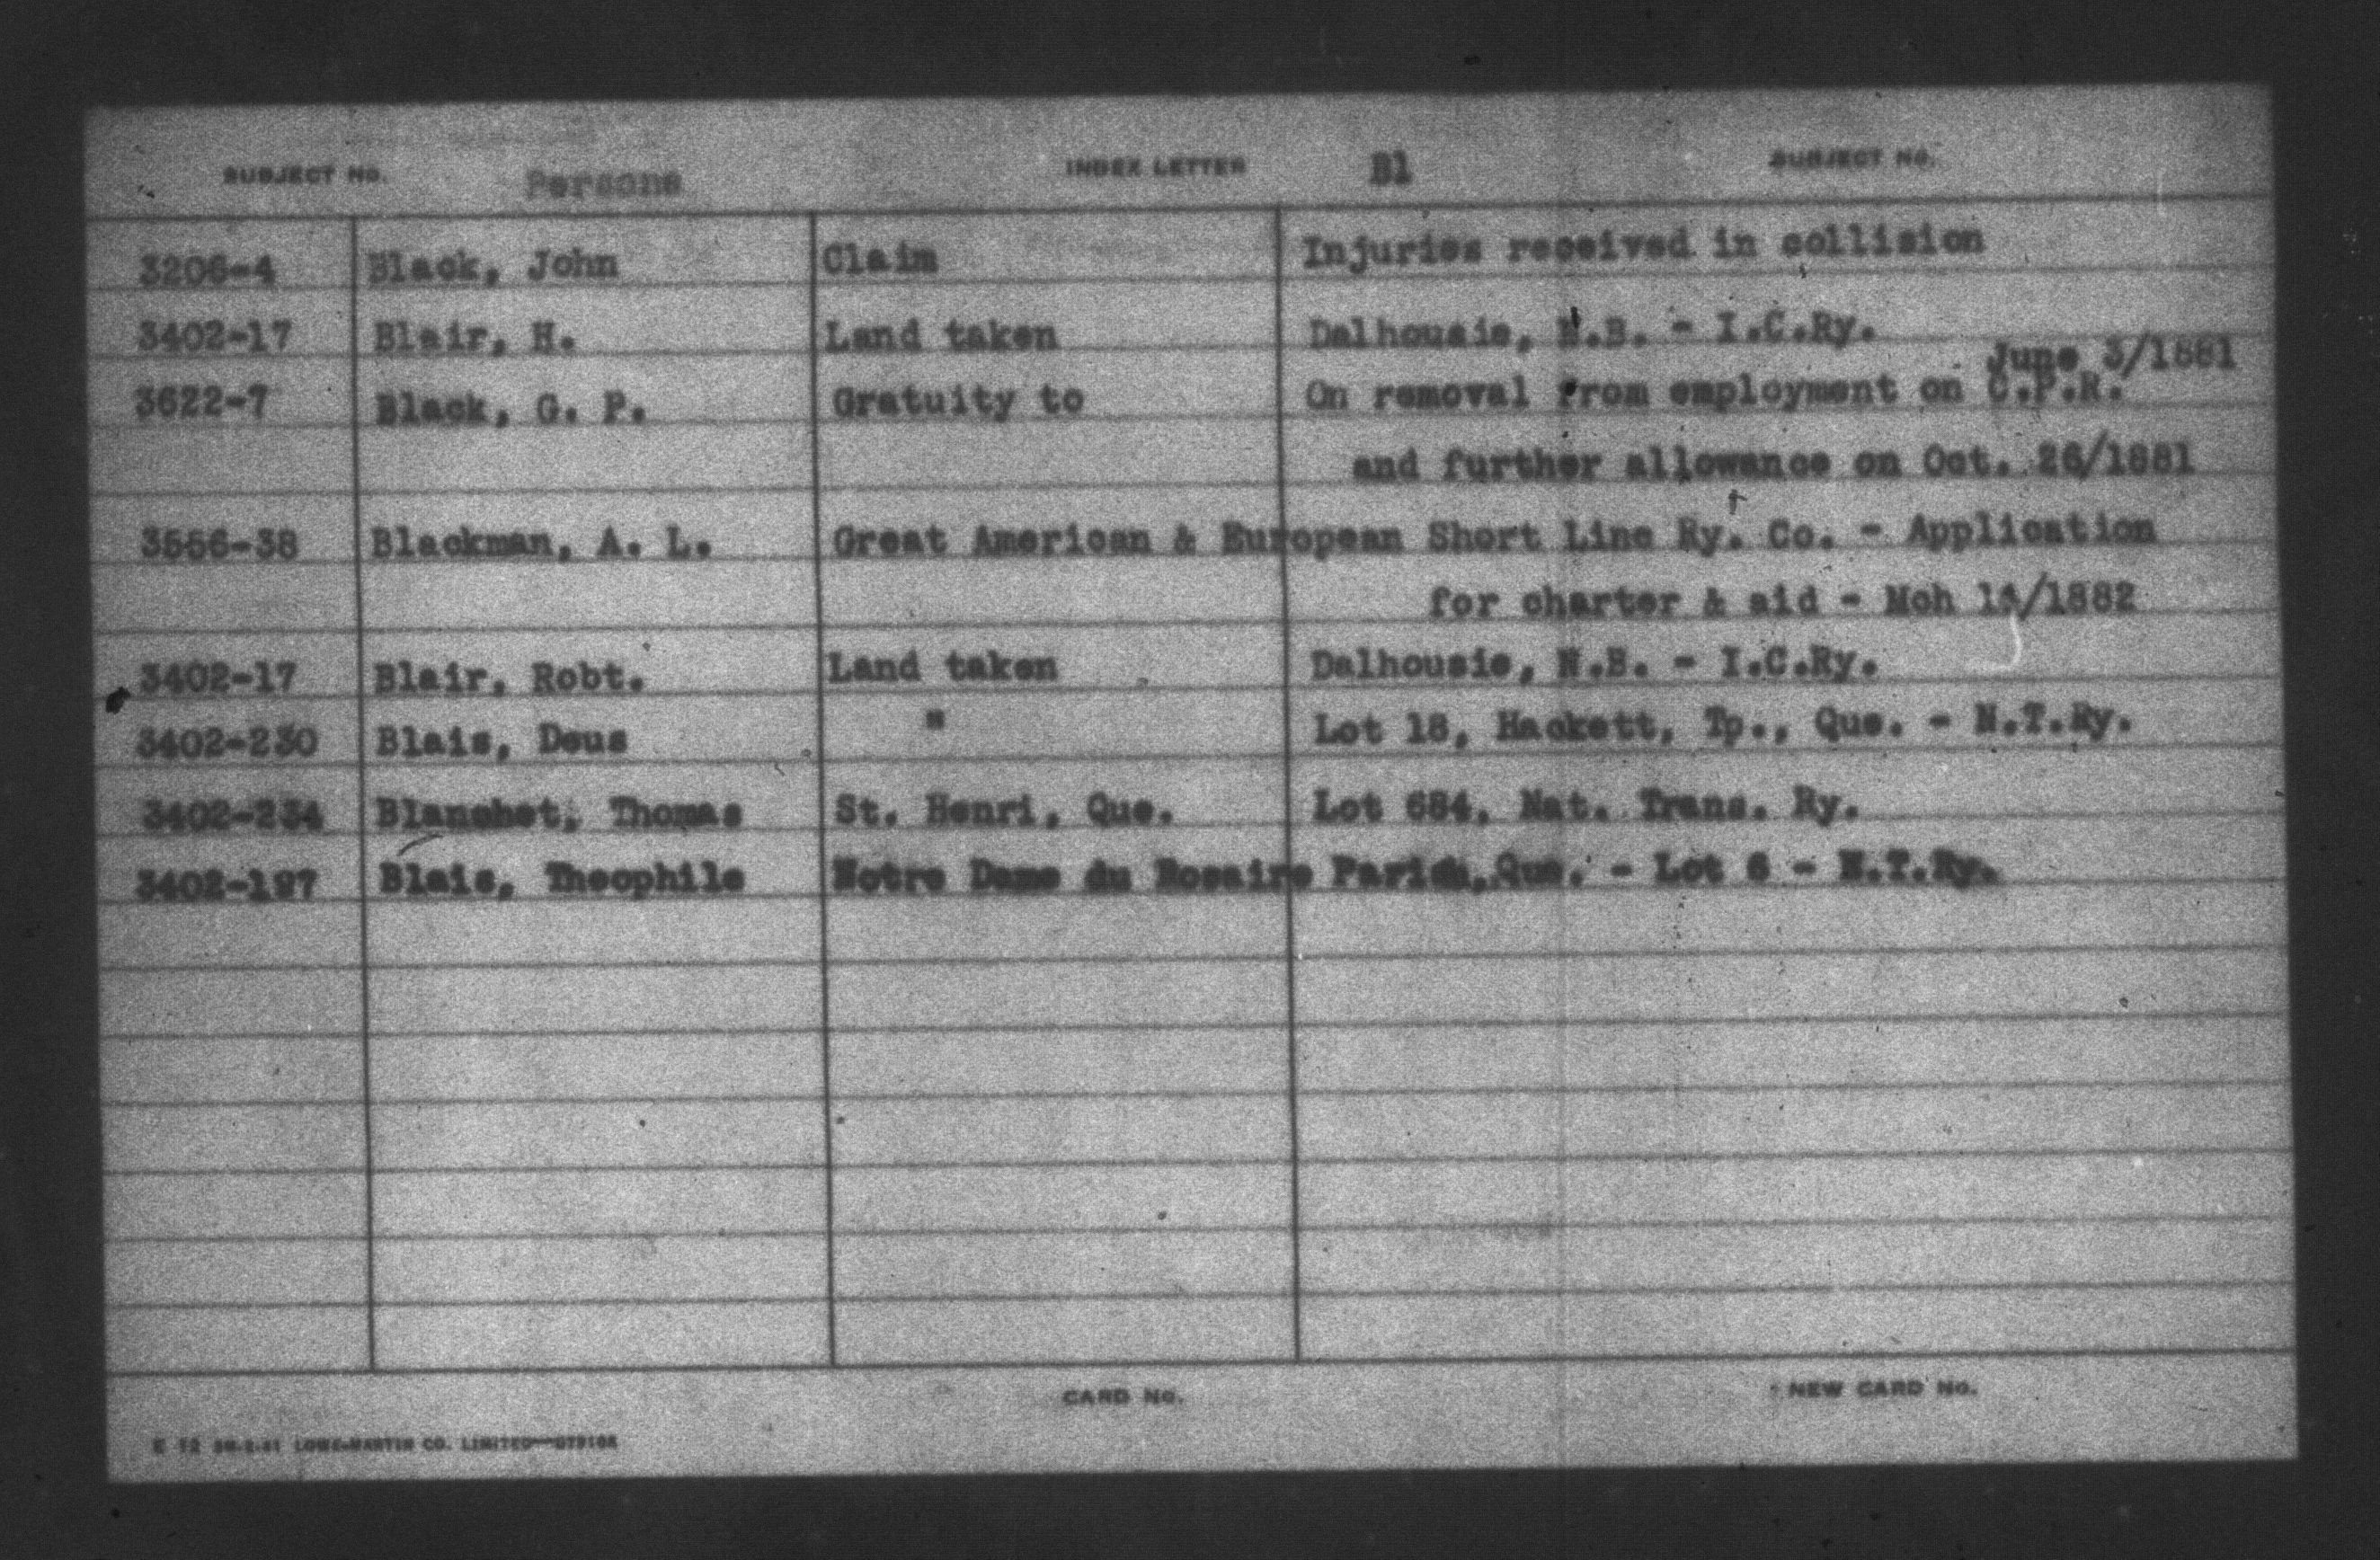 SUBJECT No. Persons INDEX LETTER Bl SUBJECT No.
3206-4 Black, John Claim Injuries received in collision
3402-17 Blair, H. Land taken Dalhousie, N.B. - I.C.Ry.
June 3/1881
3622-7 Black, G. P. Gratuity to On removal from employment on C.P.R.
and further allowance on Oct. 26/1881
3556-38 Blackman, A. L. Great American & European Short Line Ry. Co. - Application
for charter & aid - Mch 14/1882
3402-17 Blair, Robt. Land taken Dalhousie, N.B. - I.C.Ry.
3402-230 Blais, Deus " Lot 18, Hackett, Tp., Que. - N.T.Ry.
3402-234 Blanchet, Thomas St. Henri, Que. Lot 684, Nat. Trans. Ry.
3402-197 Blais, Theophile Notre Dame du Rosaire Parish, Que. - Lot 6 - N.T.Ry.
CARD No. NEW CARD No.
E 12 LOWE-MARTIN CO. LIMITED